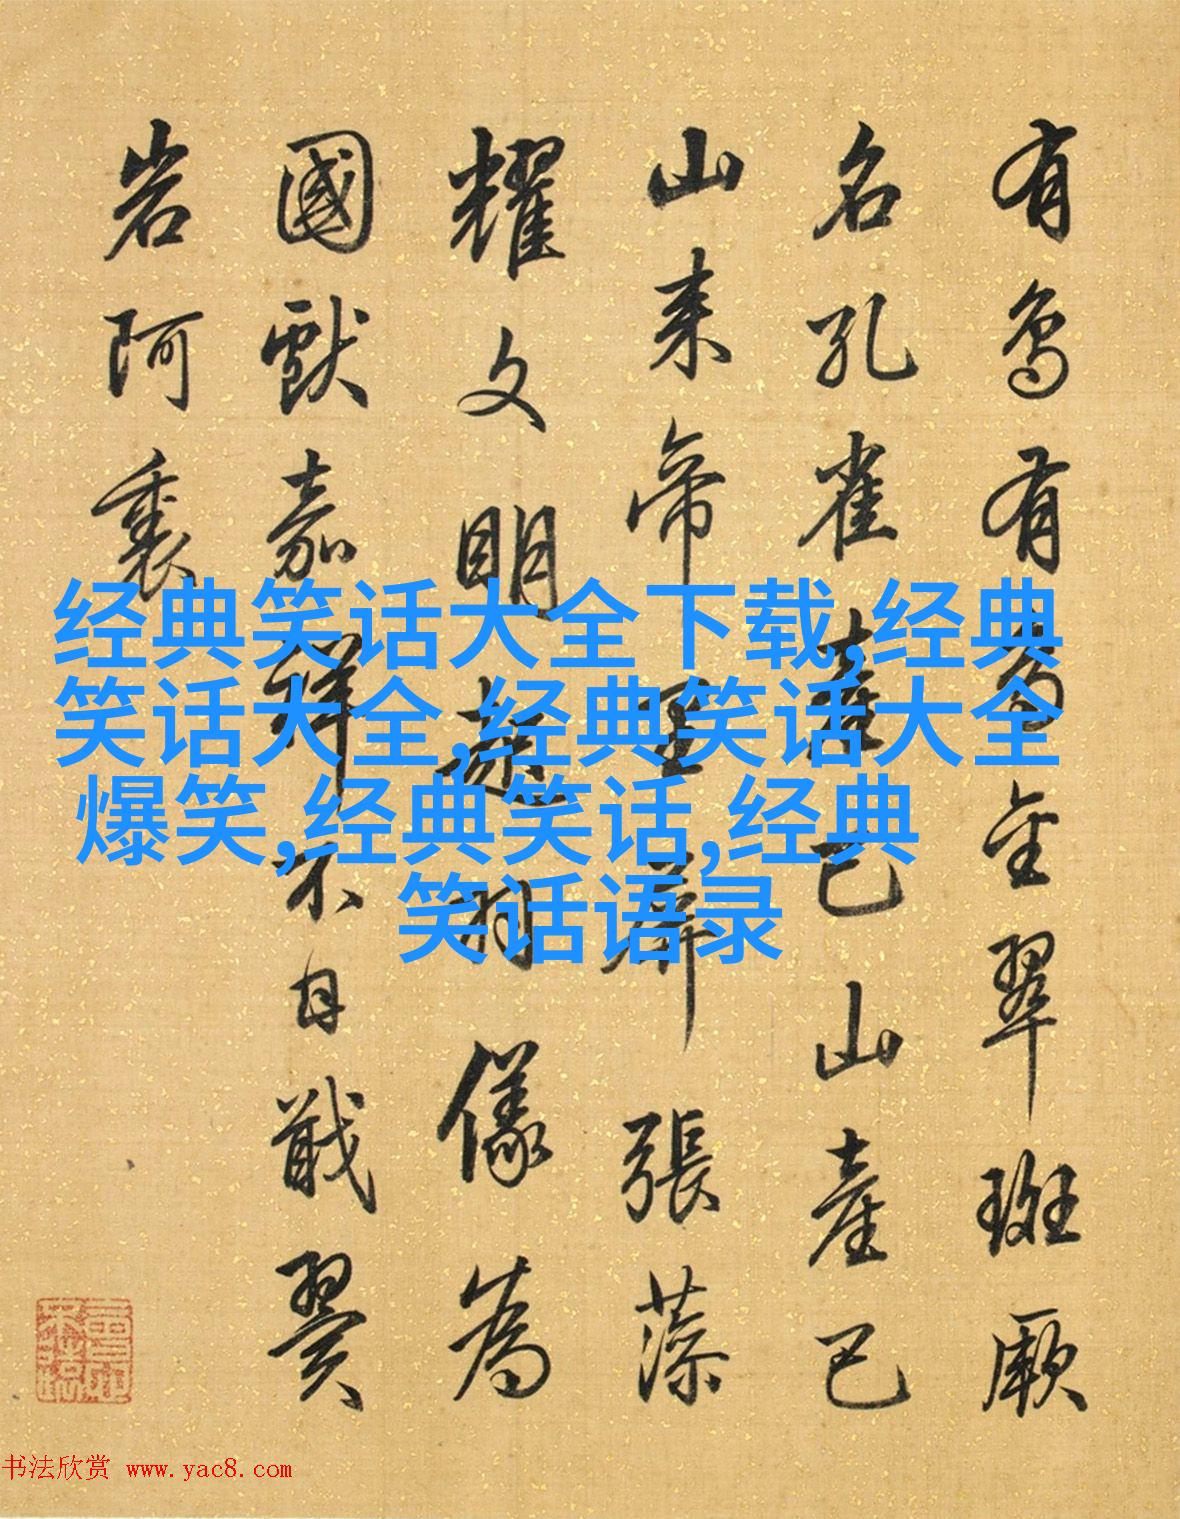 有鳥有鳥金翠斑厥
名孔雀產巴山產巴
山来帝里舞張藻
耀文明羽儀為
國獻嘉祥不自戢翼
岩阿裏
经典笑话大全下载,经典
笑话大全,经典笑话大全
爆笑,经典笑话,经典
笑话语录
书法欣赏 www.yac8.com